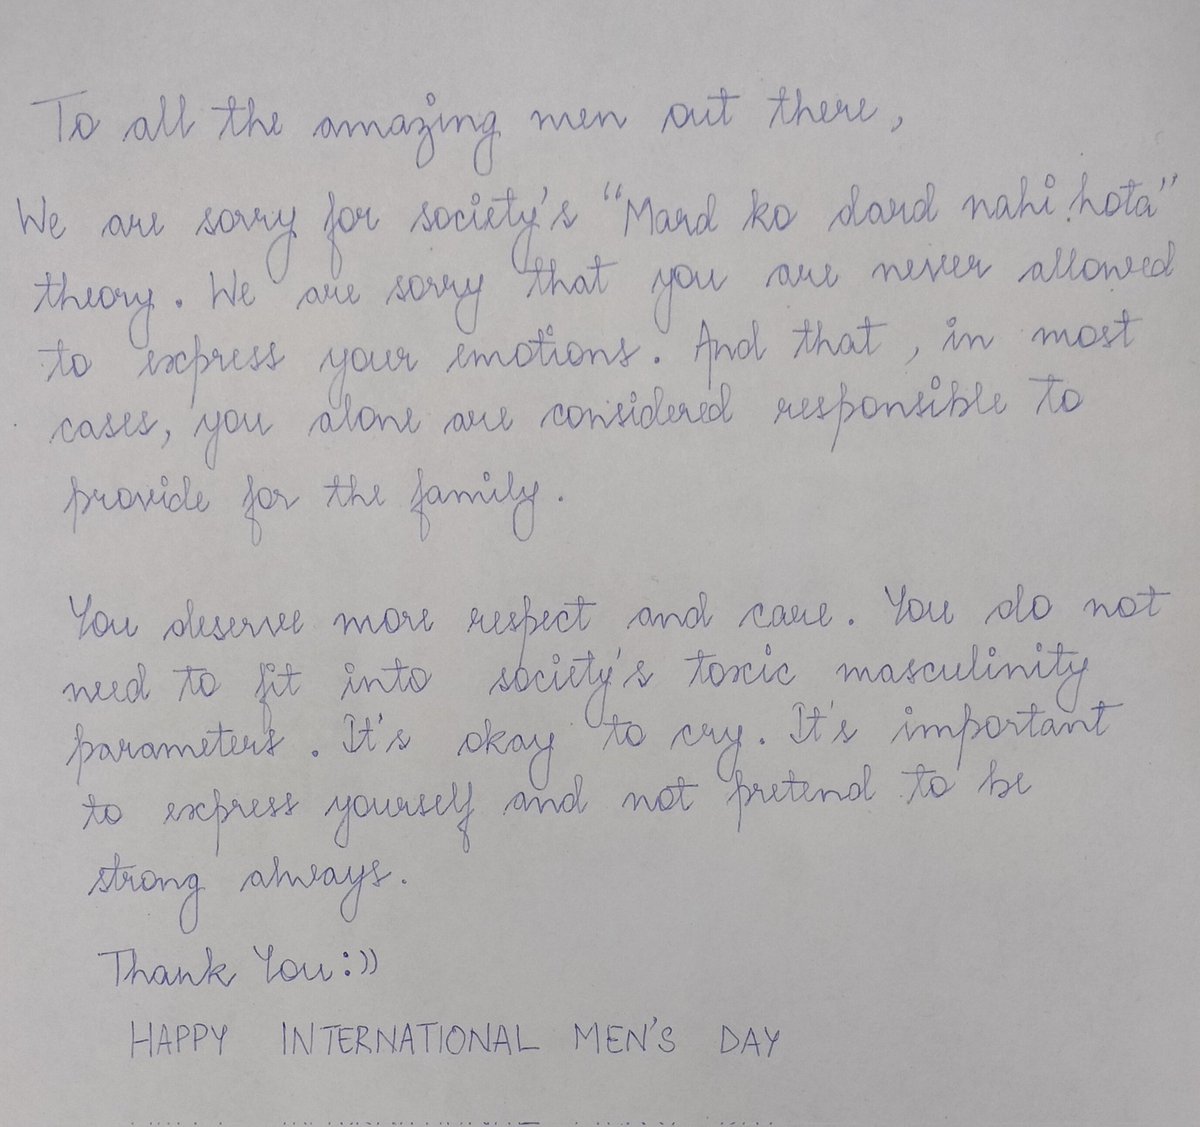 To all the amazing men out there,
We are sorry for society's "Mard ko dard nahi hota"
theory. We are sorry that you are never allowed
to express your emotions. And that, in most
cases, you alone are considered responsible to
provide for the family.
You deserve more respect and care. You do not
need to fit into society's toxic masculinity
parameters. It's okay to cry. It's important
to express yourself and not pretend to be
strong always.
Thank You :))
HAPPY INTERNATIONAL MEN'S DAY